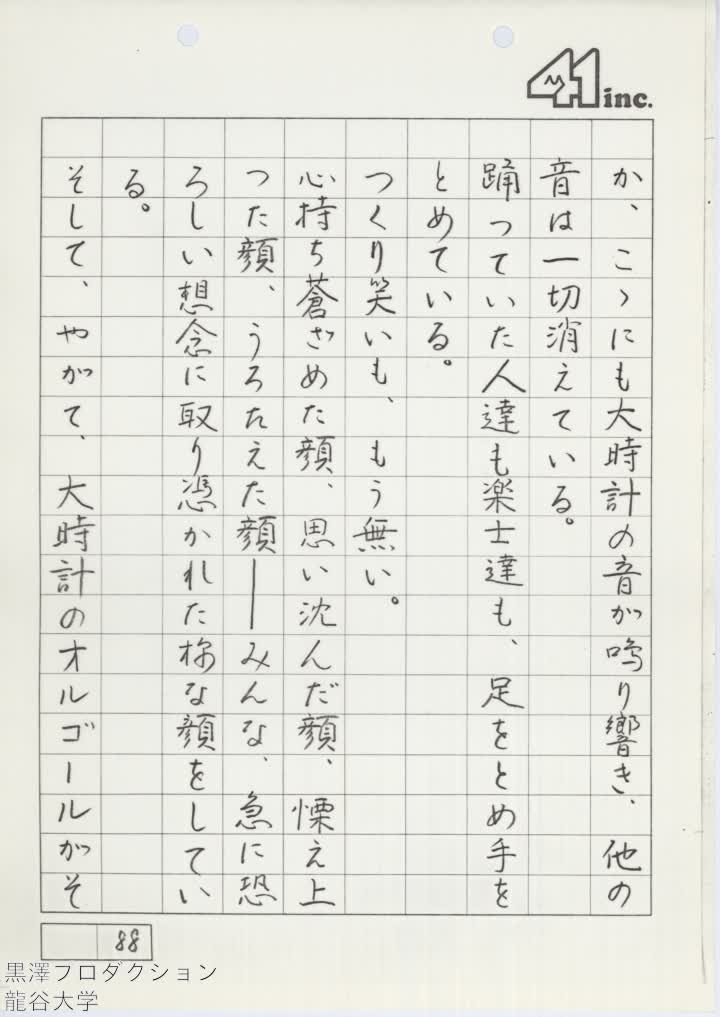 41 inc.
か、こゝにも大時計の音が鳴り響き、他の
音は一切消えている。
踊っていた人達も楽士達も、足をとめ手を
とめている。
つくり笑いも、もう無い。
心持ち蒼ざめた顔、思い沈んだ顔、慄え上
った顔、うろたえた顔――みんな、急に恐
ろしい想念に取り憑かれた様な顔をしてい
る。
そして、やがて、大時計のオルゴールがそ
88
黒澤プロダクション
龍谷大学